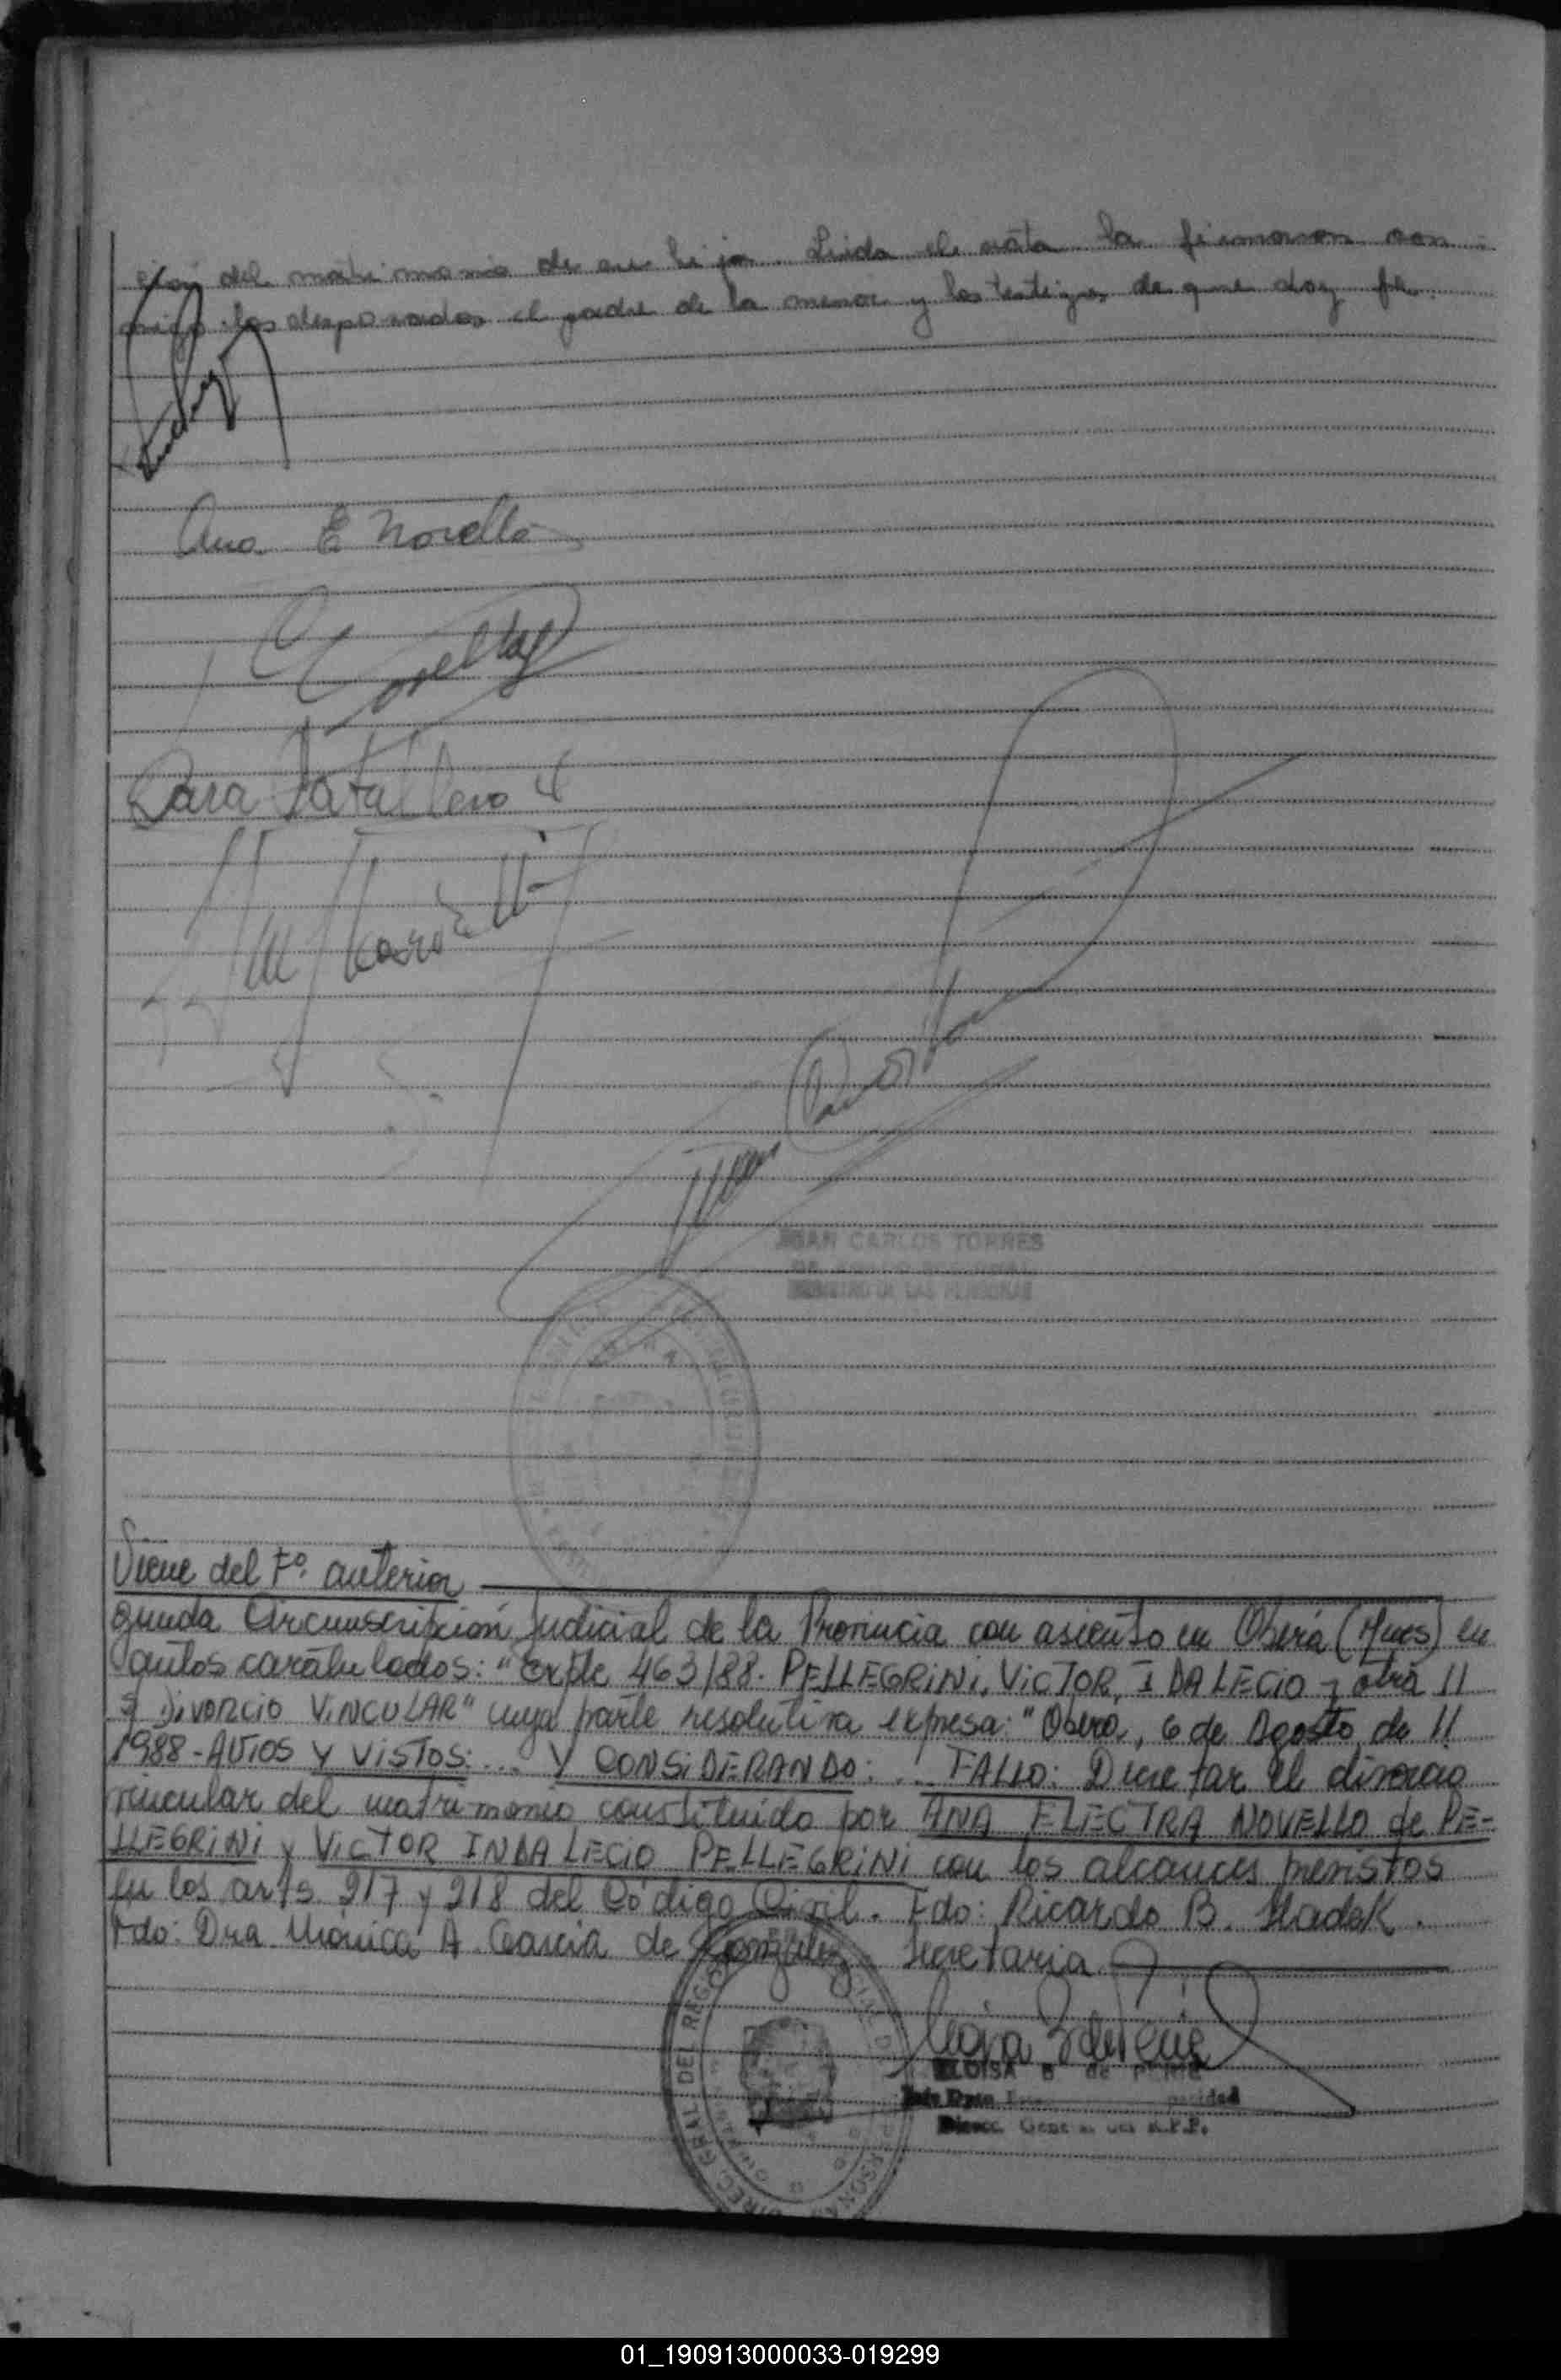 ción del matrimonio de su hija. Leida el acta la firmaron con
migo los desposados el padre de la menor y los testigos de que doy fe.
Ana E Novello
Sara
JUAN CARLOS TORRES
REGISTRO DE LAS PERSONAS
Viene del Fº. anterior
gunda Circunscripción Judicial de la Provincia con asiento en Oberá (Mnes) en
autos caratulados: "Expte 463/88. PELLEGRINI, VICTOR, INDALECIO y otra //
s/ DIVORCIO VINCULAR" cuya parte resolutiva expresa: "Oberá, 6 de Agosto de //
1988 - AUTOS Y VISTOS: ... Y CONSIDERANDO: ... FALLO: Decretar el divorcio
vincular del matrimonio constituido por ANA ELECTRA NOVELLO de PE-
LLEGRINI y VICTOR INDALECIO PELLEGRINI con los alcances previstos
en los arts. 217 y 218 del Código Civil. Fdo: Ricardo B.
Fdo: Dra. Mónica A. Garcia de González Secretaria
ELOISA B de
Direcc. R.P.P.
01_190913000033-019299